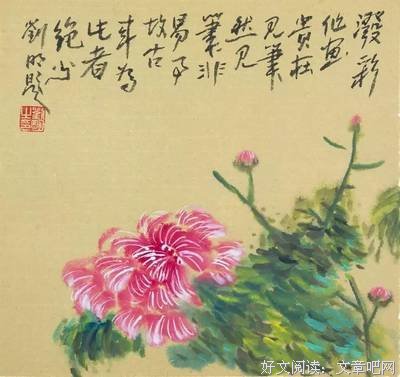 潑彩
作画
貴在
见筆
然见
筆非
易事
故古
来为
此者
絕少
劉明題
好文阅读：文章吧网